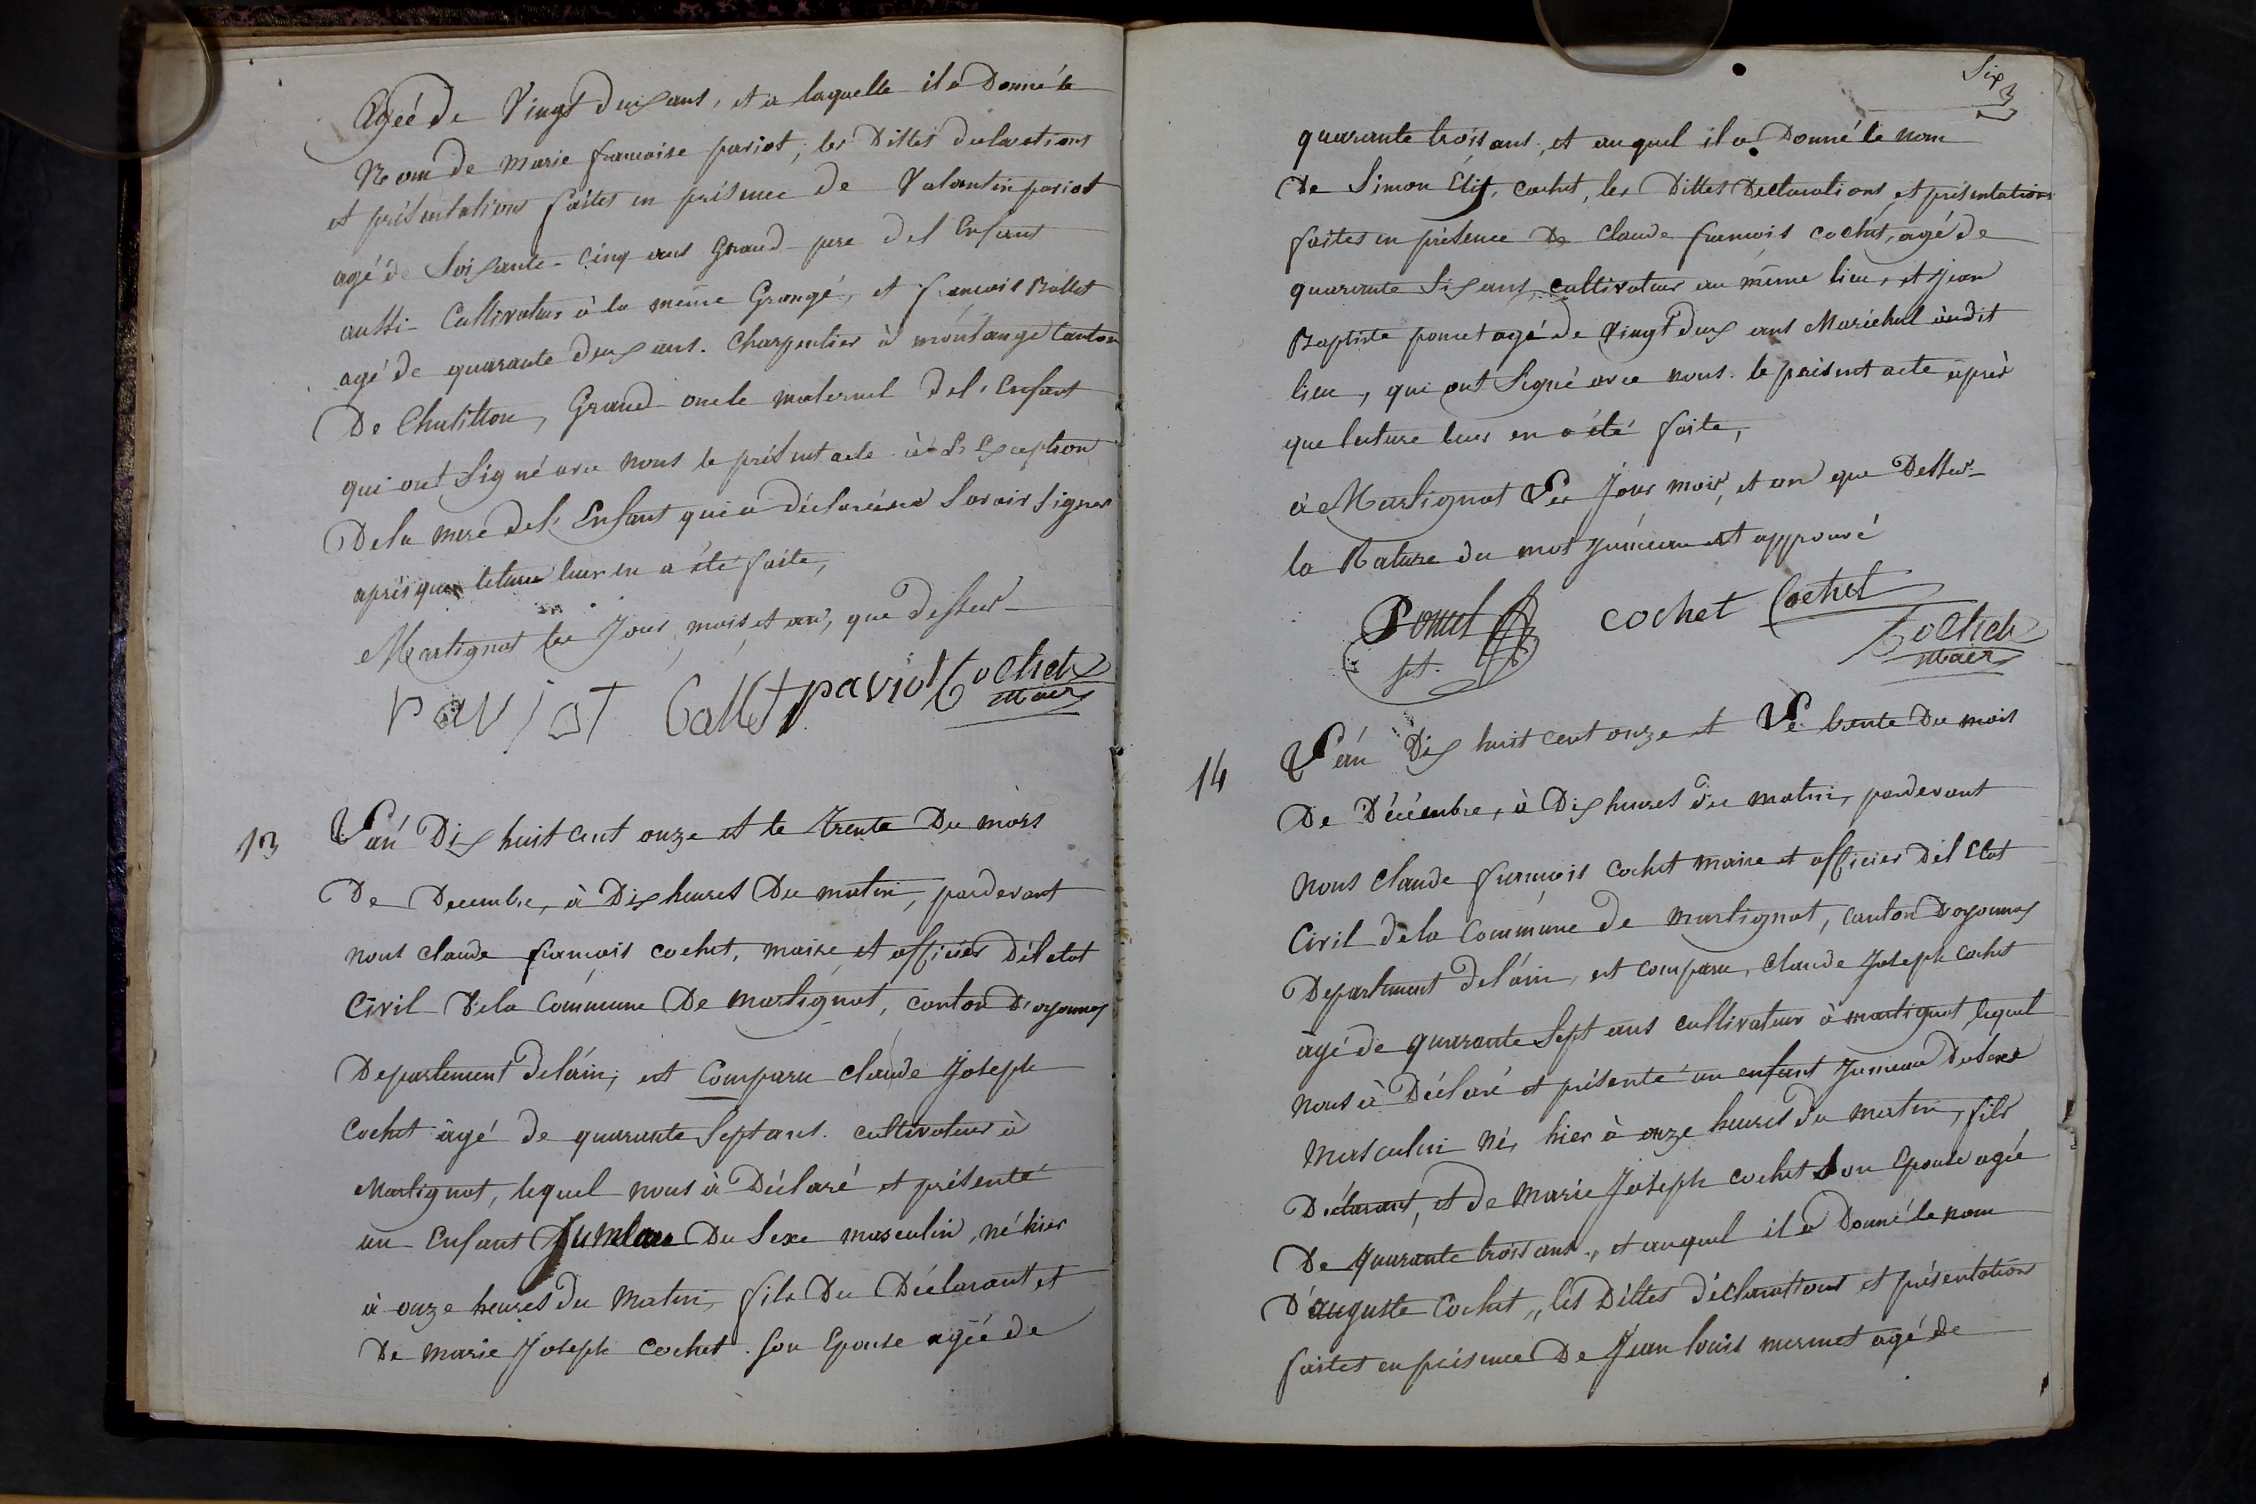 Agée De Vingt deux ans, et a laquelle il a Donné le
Nom de marie francoise pariot, les Dittes declarations
et présentations faites en présence de Valantin pariot
agé de Soixante-Cinq ans Grand-pere del Enfant
aussi Cultivateur à la même Grange, et francois Ballet
agé de quarante deux ans. Charpentier à montange Canton
De Chatillon, Grand oncle maternel del'Enfant
qui ont Signé avec nous le présent acte à L'Exception
De la mere del'Enfant qui a déclaré Savoir Signer
après que lecture leur en a été faite,
Martignat les Jour, mois, et an, que dessus
pariot Ballet paviot Cochet
Maire
13
L'an Dix huit cent onze et le trente Du mois
De Decembre, à Dix heures Du matin, pardevant
nous claude françois cochet, maire et officier Del'etat
Civil De la Commune De martignat, canton D'oyonnax
Departement Delain, est Comparu claude Joseph
Cochet âgé de quarante Sept ans. cultivateur à
Martignat, lequel nous à Déclaré et présenté
un Enfant Jumeau Du Sexe masculin, né hier
à onze heures du Matin, fils Du Déclarant et
De marie Joseph Cochet. Son Epouse agée de
Six
3
quarante trois ans, et auquel il a Donné le nom
De Simon cochet, les Dittes Declarations et présentations
faites en présence De Claude francois Cochet, agé de
quarante Six ans, cultivateur au même lieu, et Jean
Baptiste poncet agé de Vingt deux ans Maréchal audit
lieu, qui ont Signé avec nous le présent acte après
que lecture leur en a été faite,
à Martignat Les Jour mois, et an que Dessus
la Rature du mot Jumeau est approuvé
Poncet cochet Cochet
Cochet
Maire
14
L'an Dix huit cent onze et Le trente Du mois
De Décembre, à Dix heures du matin, pardevant
nous claude francois Cochet maire et officier Del Etat
Civil dela Commune de martignat, canton Doyonnax
Departement del'ain, est comparu, claude Joseph cochet
agé de quarante Sept ans cultivateur à martignat lequel
nous à Déclaré et présenté un enfant Jumeau Du Sexe
Masculin né, hier à onze heures du matin, fils
Déclarant, et de marie Joseph cochet Son Epouse agée
De quarante trois ans, et auquel il a Donné le nom
D'auguste Cochet, les Dittes déclarations et présentations
faites en présence De Jean louis mermet agé de